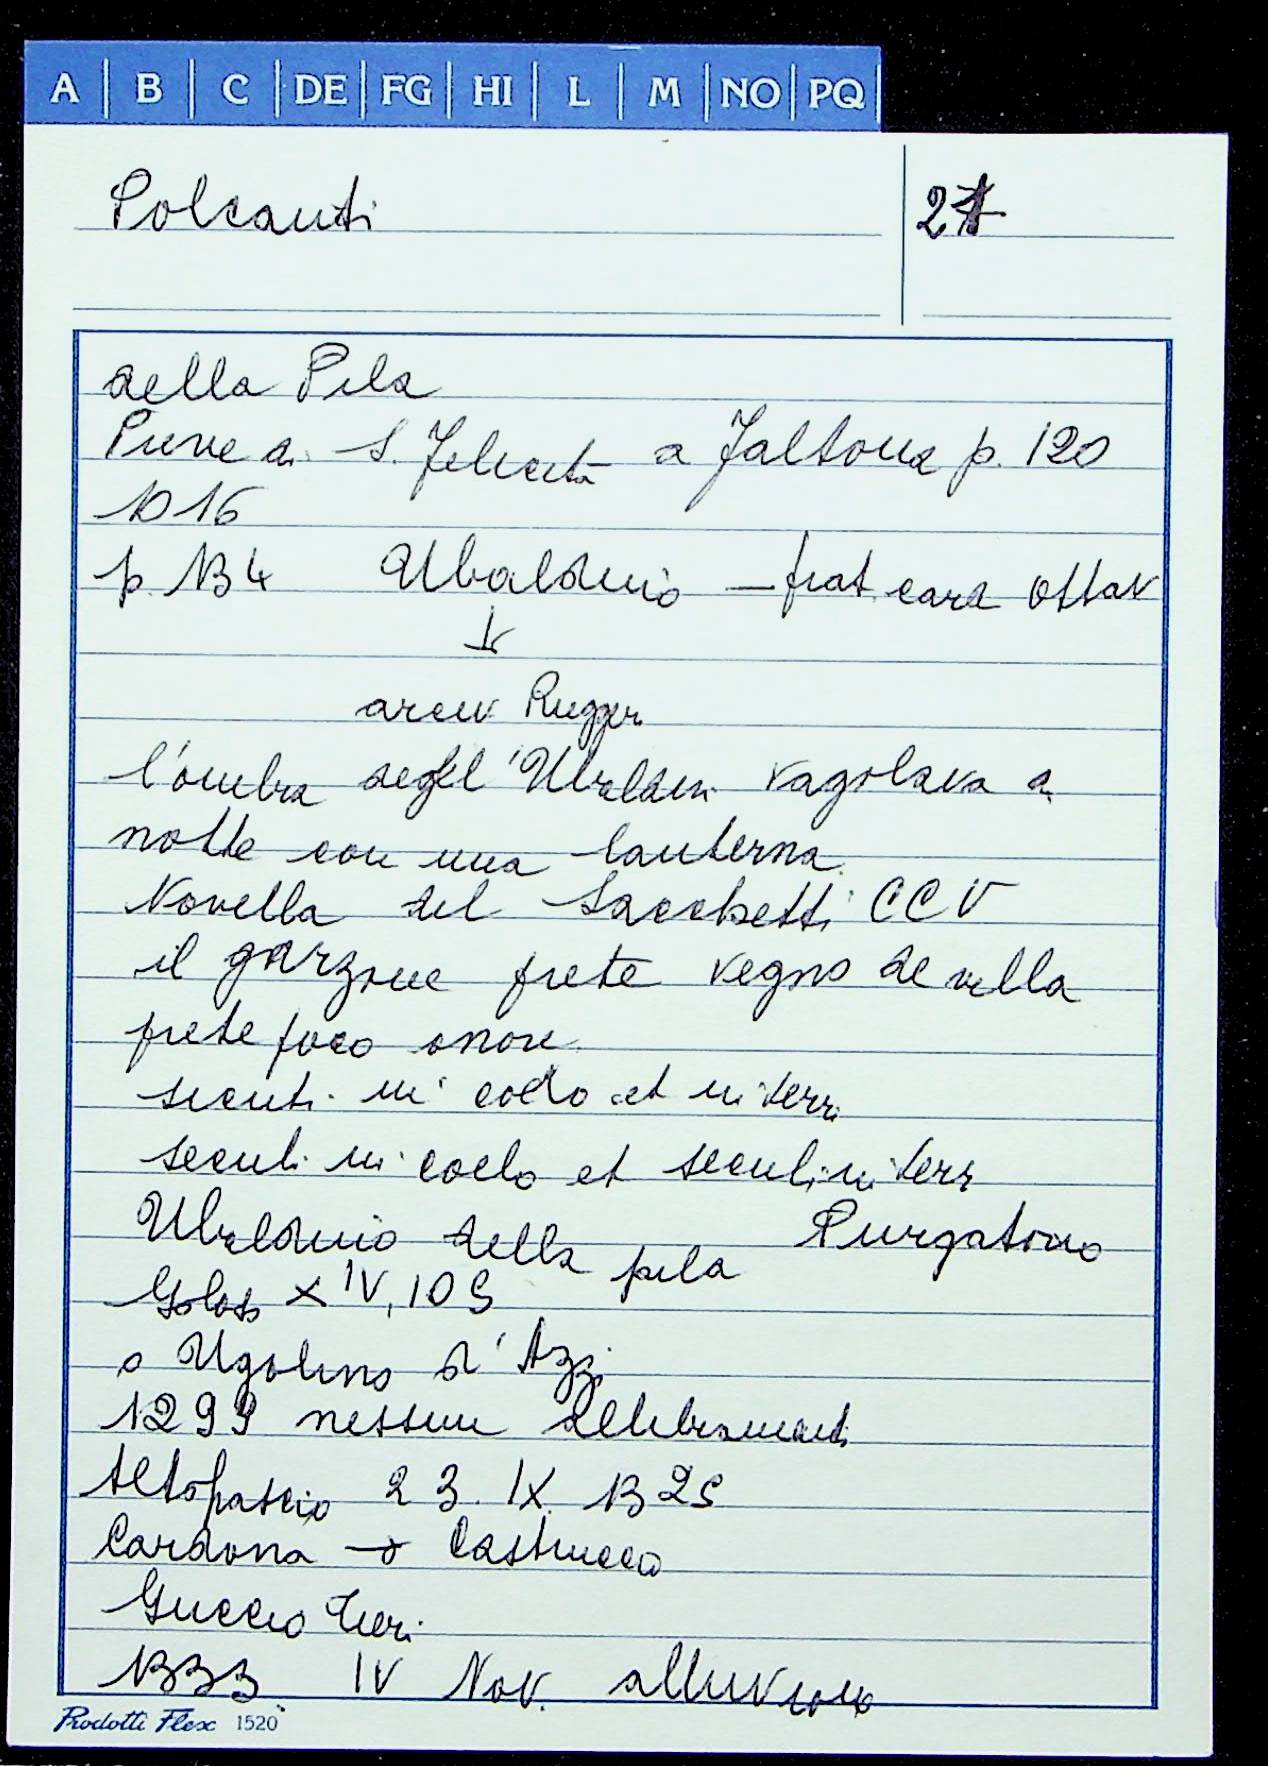 A B C DE FG HI L M NO PQ
Polcanti
27
della Pila
Pieve di S. Felicita a Faltona p. 120
1016
p. 134 Ubaldino — frat. card Ottav
arciv. Rugger.
l'ombra degl'Ubaldini vagolava di
notte con una lanterna.
Novella del Sacchetti CCV
il garzone prete vegno de villa
prete foco onore
sicuti in coelo et in terra
seculi in coelo et seculi in terr
Ubaldino della pila Purgatorio
Goloso XIV, 105
o Ugolino d'Azzo
1299
Altopascio 23. IX. 1325
Cardona → Castruccio
Guccio
1333 IV Nov. alluvione
Prodotti Flex 1520